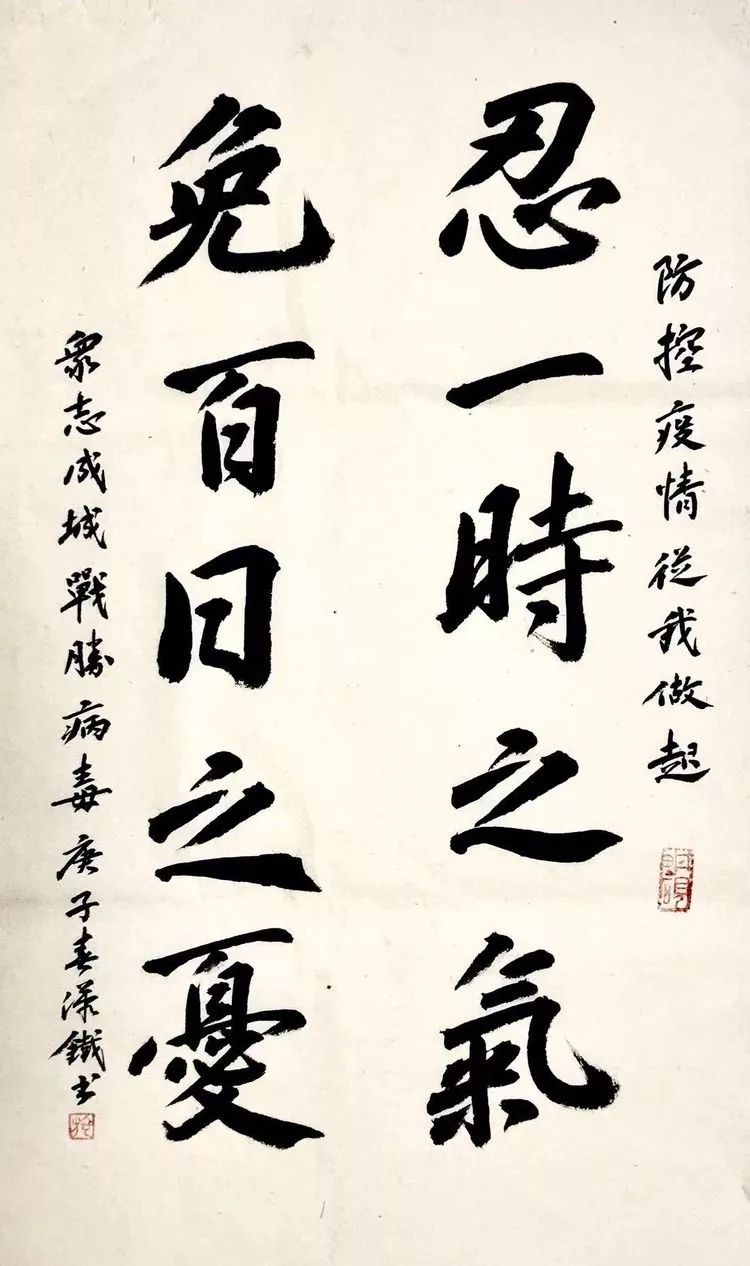 防控疫情從我做起
忍一時之氣
免百日之憂
眾志成城戰勝病毒庚子春漢鐵书